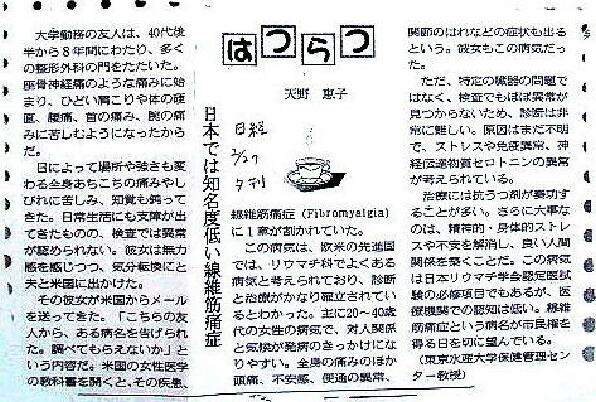 はつらつ
天野 恵子
日経
2/27
夕刊
日本では知名度低い線維筋痛症
大学勤務の友人は、40代後
半から8年間にわたり、多く
の整形外科の門をたたいた。
座骨神経痛のような痛みに始
まり、ひどい肩こりや体の硬
直、腰痛、首の痛み、腕の痛
みに苦しむようになったから
だ。
日によって場所や強さも変
わる全身あちこちの痛みやし
びれに苦しみ、知覚も鈍って
きた。日常生活にも支障が出
てきたものの、検査では異常
が認められない。彼女は無力
感を感じつつ、気分転換にと
夫と米国に出かけた。
その彼女が米国からメール
を送ってきた。「こちらの友
人から、ある病名を告げられ
た。調べてもらえないか」と
いう内容だ。米国の女性医学
の教科書を開くと、その疾患、
線維筋痛症(Fibromyalgia)
に1章が割かれていた。
この病気は、欧米の先進国
では、リウマチ科でよくある
病気と考えられており、診断
と治療がかなり確立されてい
るとわかった。主に20〜40歳
代の女性の病気で、対人関係
と気候が発病のきっかけにな
りやすい。全身の痛みのほか
頭痛、不安感、便通の異常、
関節のはれなどの症状も出る
という。彼女もこの病気だっ
た。
ただ、特定の臓器の問題で
はなく、検査でもほぼ異常が
見つからないため、診断は非
常に難しい。原因はまだ不明
で、ストレスや免疫異常、神
経伝達物質セロトニンの異常
が考えられている。
治療には抗うつ剤が奏功す
ることが多い。さらに大事な
のは、精神的・身体的ストレ
スや不安を解消し、良い人間
関係を築くことだ。この病気
は日本リウマチ学会認定医試
験の必修項目でもあるが、医
療機関での認知は低い。線維
筋痛症という病名が市民権を
得る日を切に望んでいる。
(東京水産大学保健管理セン
ター教授)